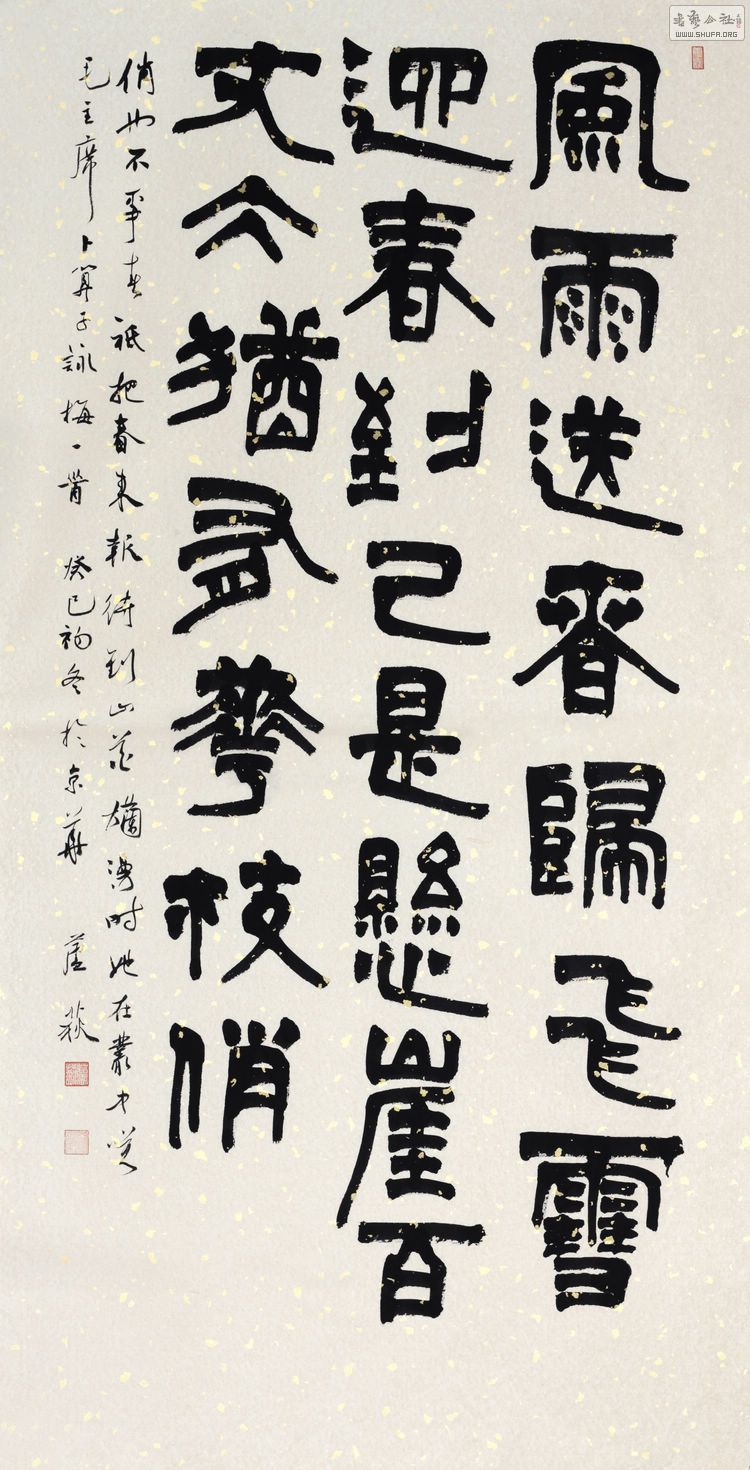 風雨送春歸飛雪
迎春到已是懸崖百
丈仌猶有華枝俏
俏也不爭春祇把春來報待到山花爛漫時她在叢中笑
毛主席卜算子詠梅一首 癸巳初冬於京華 蘆荻
書藝公社
WWW.SHUFA.ORG